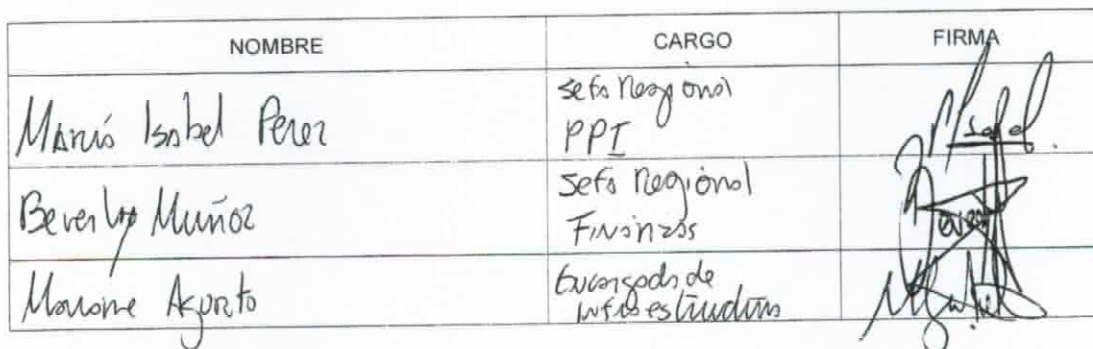 NOMBRE CARGO FIRMA
María Isabel Perez
Jefa Regional
PPI
Beverly Muñoz
Jefa Regional
Finanzas
Agurto
Encargada de
infraestructura